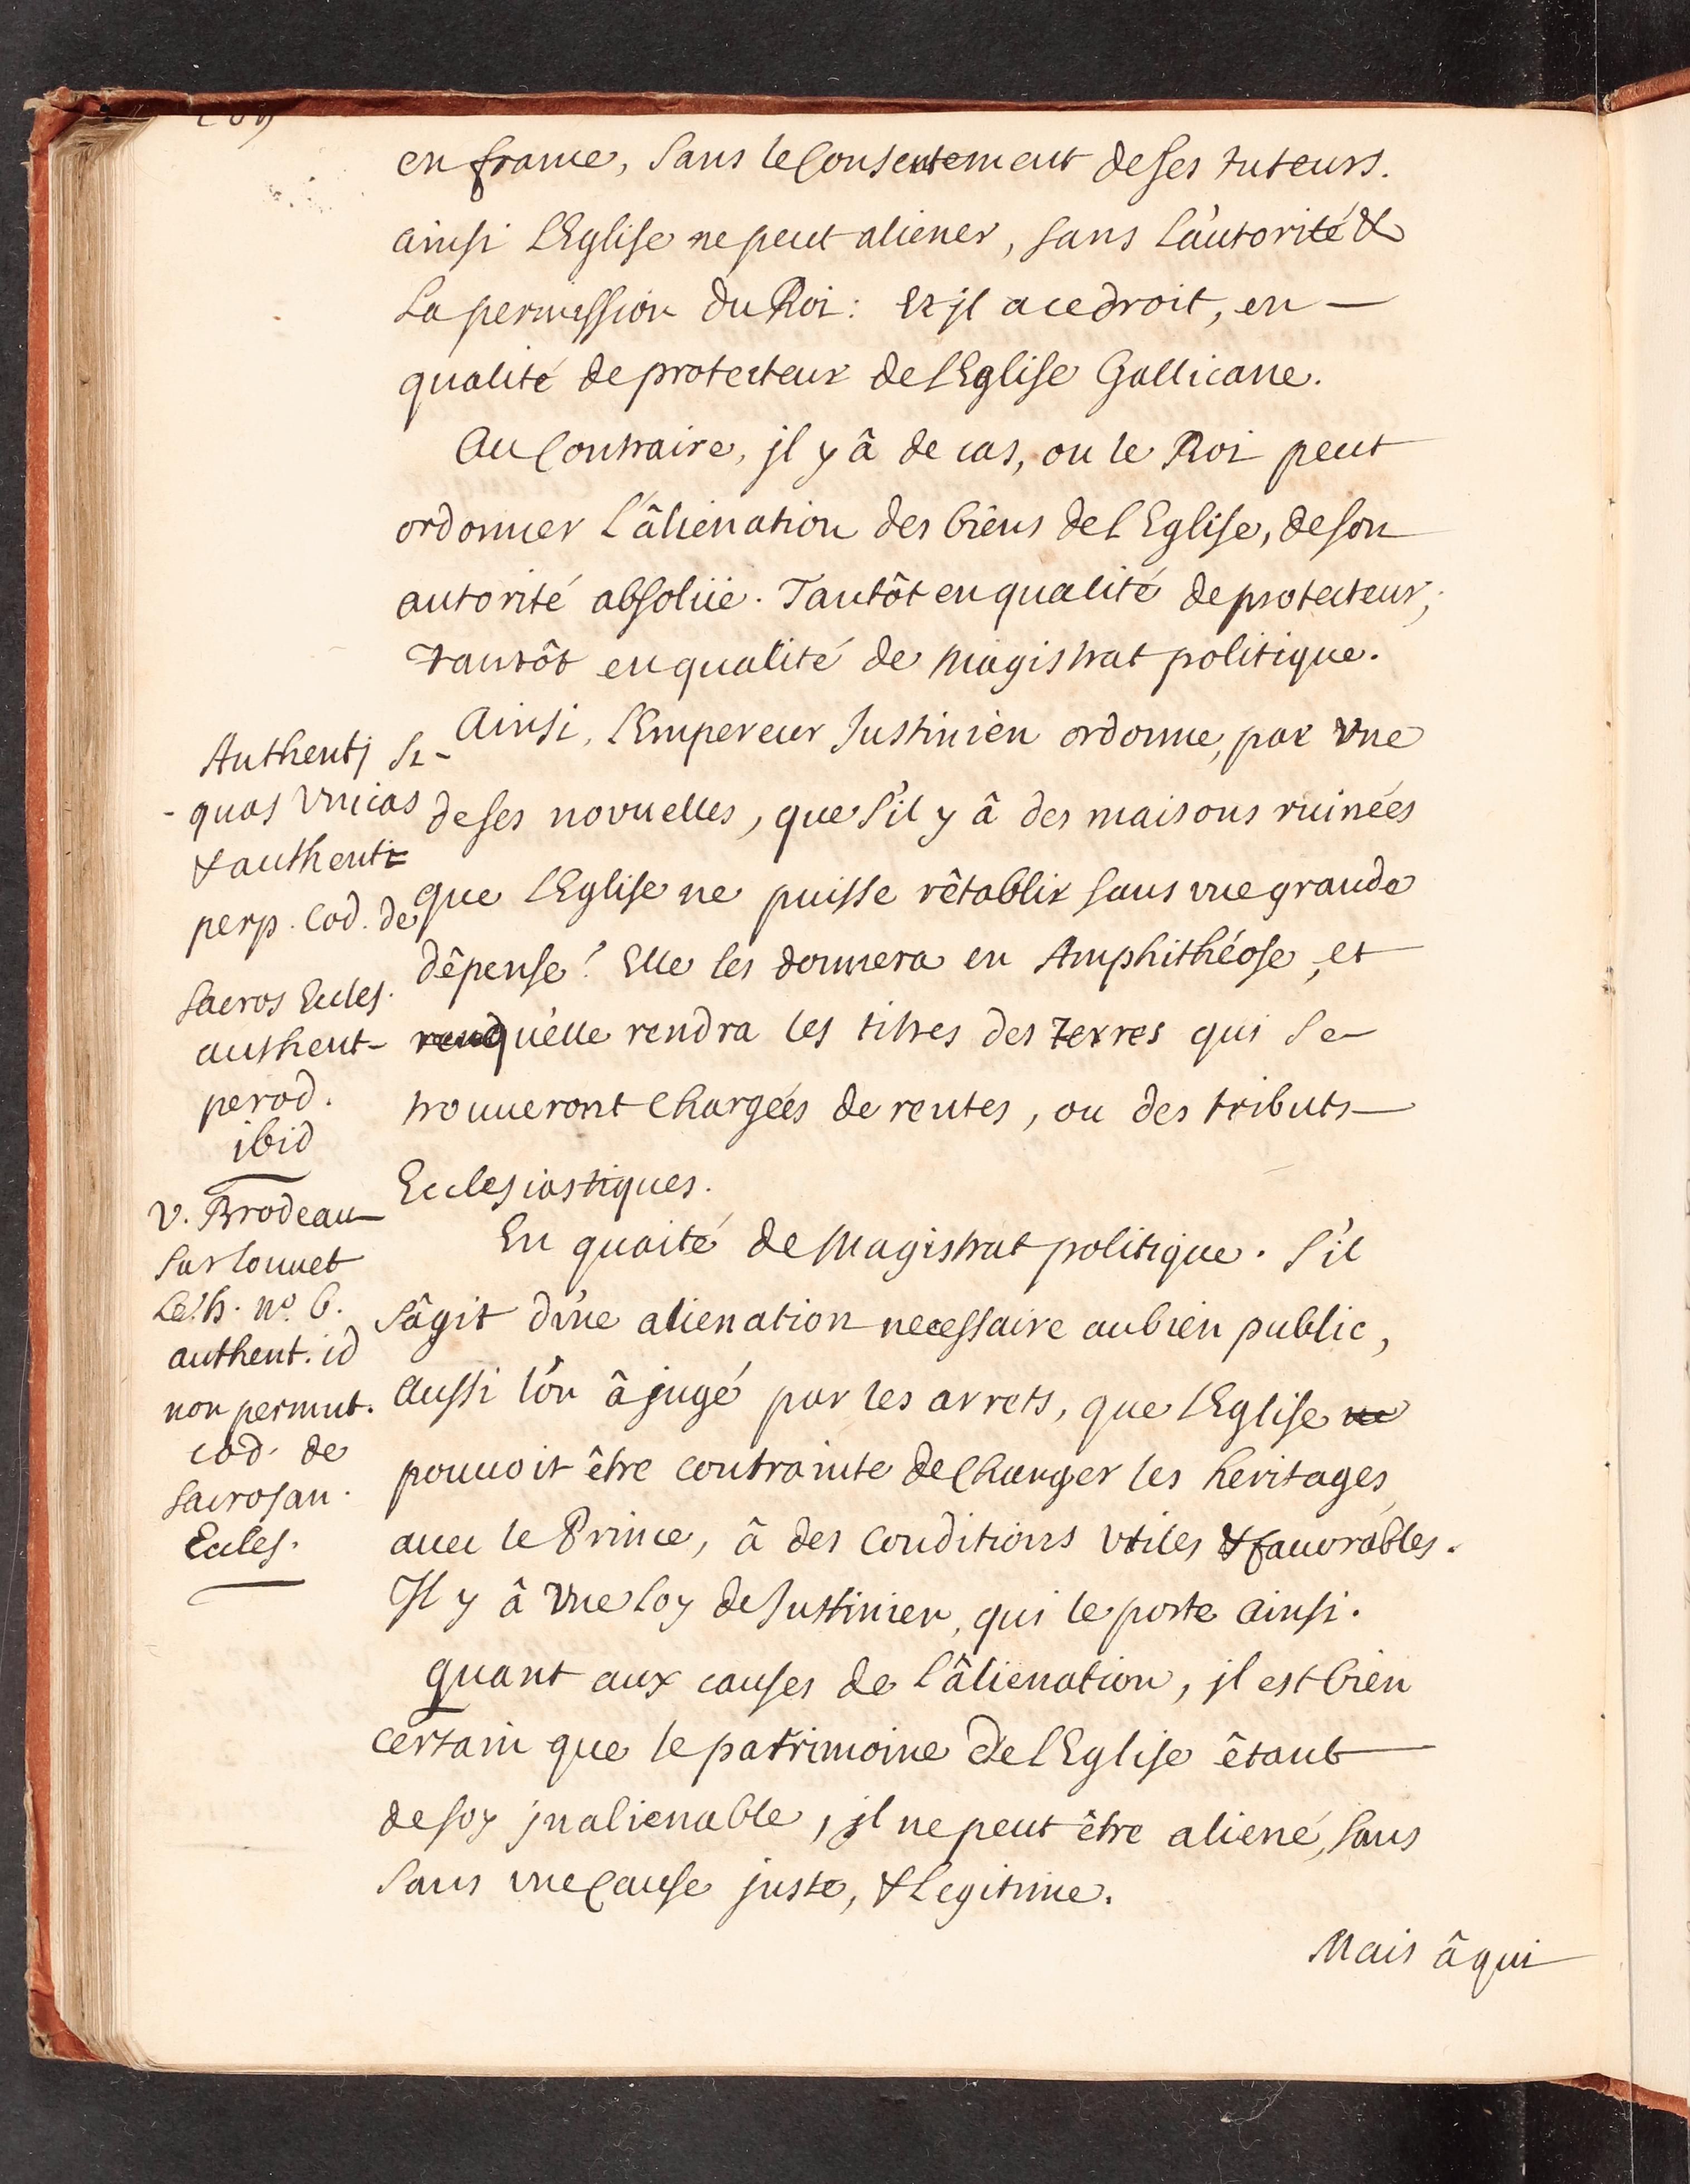 en france, sans le Consentement de ses tuteurs.
ainsi l'Eglise ne peut aliener, sans l'autorité &
la permission du Roi: Et jl a ce droit, en —
qualité de protecteur de l'Eglise Gallicane.
Au Contraire, jl y â de cas, ou le Roi peut
ordonner l'âlienation des biens de l'Eglise, de son
autorité absolüe. Tantôt en qualité de protecteur;
tantôt en qualité de Magistrat politique.
Ainsi, l'Empereur Justinien ordonne, par vne
de ses novuelles, que s'il y â des maisons ruinées
que l'Eglise ne puisse rêtablir sans vne grande
dêpense! Elle les donnera en Amphithéose, et
qu'elle rendra les titres des terres qui se —
trouueront Chargées de rentes, ou des tributs —
Ecclesiastiques.
En quaité de Magistrat politique. S'il
s'âgit d'vne alienation necessaire au bien public,
aussi l'on â jugé par les arrets, que l'Eglise ne
pouuoit être contrainte de Changer les heritages
auec le Prince, â des Conditions vtiles & fauorables.
Il y â vne loy de Justinien, qui le porte ainsi.
quant aux causes de l'âlienation, jl est bien
certain que le patrimoine de l'Eglise êtant —
de soy jnalienable, jl ne peut être aliené, sans
sans vne Cause juste, & legitime.
Mais â qui
Authenti Si -
- quas vnicas
& authenti
perp. Cod. de
Sacros Eccles.
authent -
perod.
ibid
V. Brodeau
Sur Louuet
n.º 6.
authent. id
non permut.
cod. de
Sacrosan.
Eccles.